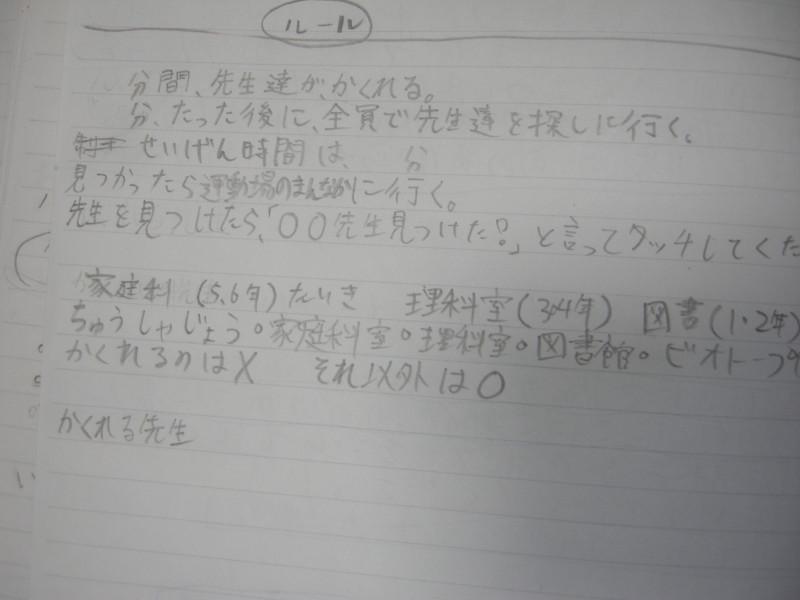 ルール
分間、先生達が、かくれる。
分、たった後に、全員で先生達を探しに行く。
せいげん時間は、 分
見つかったら運動場のまんなかに行く。
先生を見つけたら、「〇〇先生見つけた!」と言ってタッチしてくだ
家庭科(5、6年)たいき 理科室(3・4年) 図書(1・2年)
ちゅうしゃじょう。家庭科室。理科室。図書館。ビオトープ
かくれるのは× それ以外は〇
かくれる先生